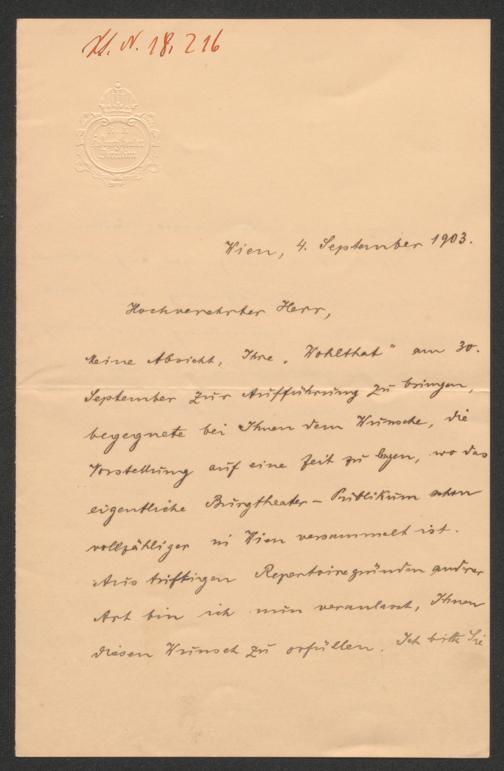 H. N. 18, 216
Wien, 4. September 1903.
Hochverehrter Herr,
Meine Absicht, Ihre „Wohlthat" am 30.
September zur Aufführung zu bringen,
begegnete bei Ihnen dem Wunsche, die
Vorstellung auf eine Zeit zu legen, wo das
eigentliche Burgtheater-Publikum schon
vollzähliger in Wien versammelt ist.
Aus triftigen Repertoiregründen andrer
Art bin ich nun veranlasst, Ihnen
diesen Wunsch zu erfüllen. Ich bitte Sie